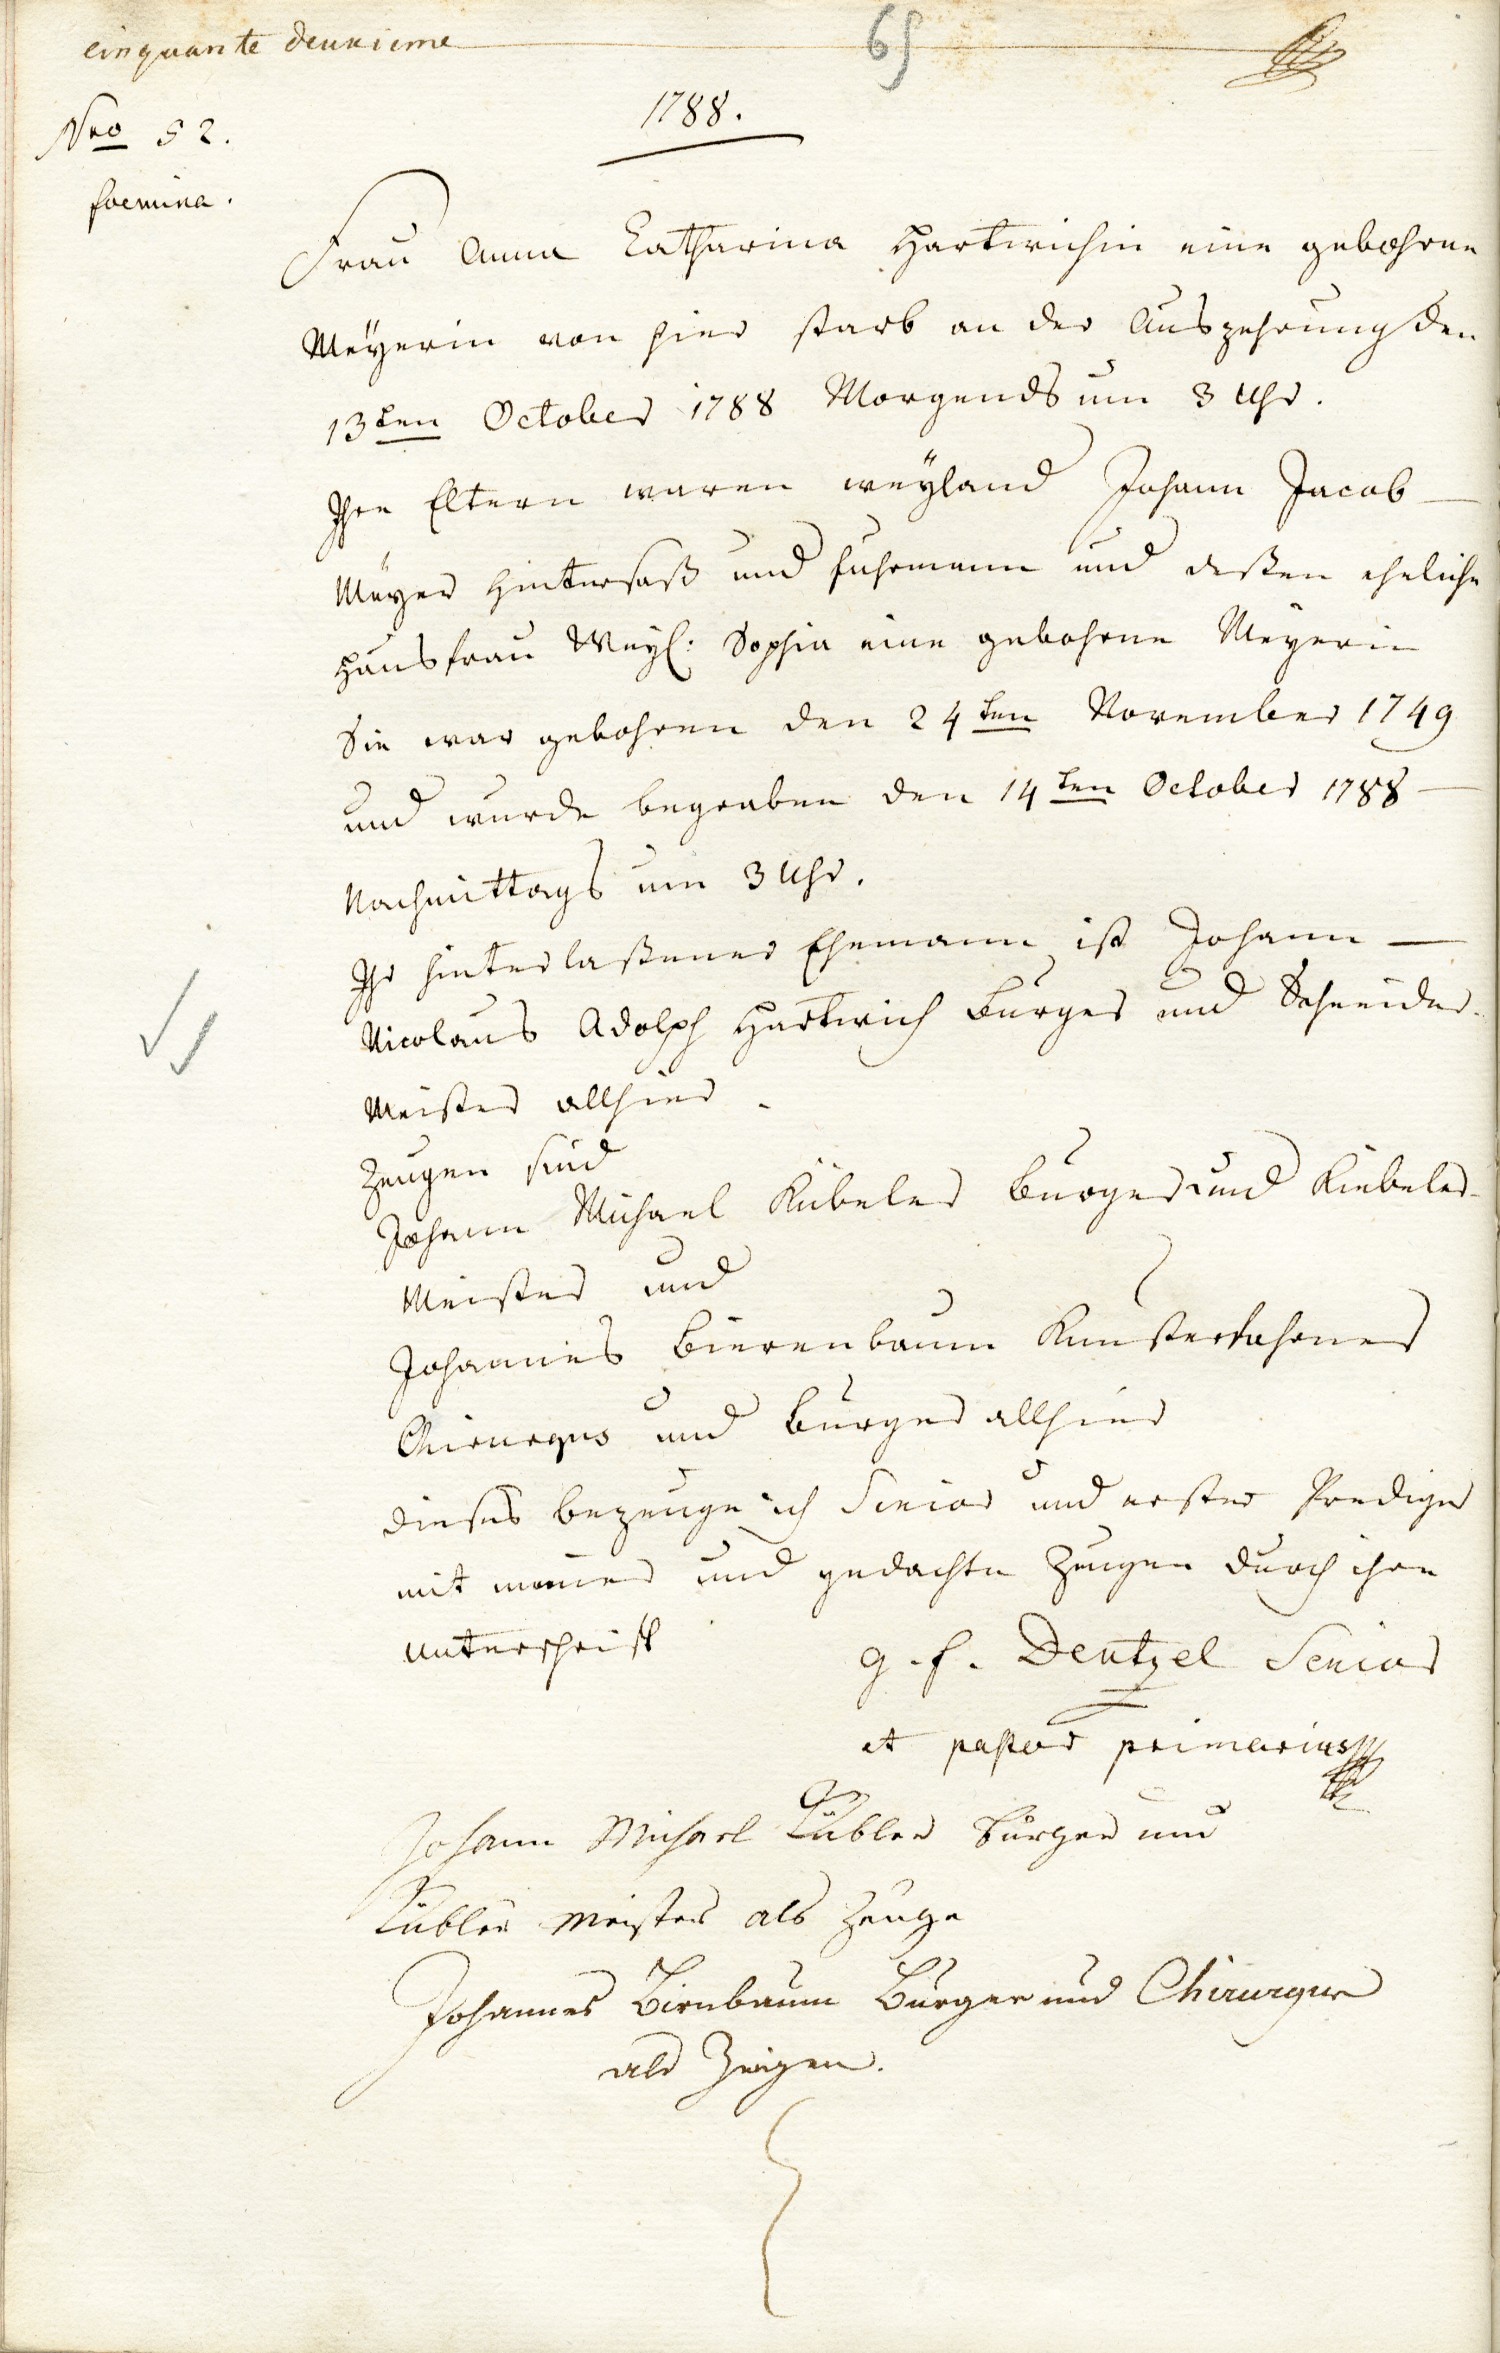 cinquante deuxieme
65
1788.
Nro 52.
foemina.
Frau Anna Catharina Hartwichin eine gebohrne
Meÿerin von hier starb an der Auszehrung den
13ten October 1788 Morgends um 3 Uhr.
Ihre Eltern waren weÿland Johann Jacob
Meÿer Hintersaß und fuhrmann und deßen eheliche
Hausfrau Weÿl: Sophia eine gebohrne Meyerin
Sie war gebohren den 24ten November 1749
und wurde begraben den 14ten October 1788
Nachmittags um 3 Uhr.
Ihr hinterlaßener Ehemann ist Johann
Nicolaus Adolph Hartwich Burger und Schneider-
Meister allhier.
Zeugen sind
Johann Michael Kübeler Burger und Kiebeler-
Meister und
Johannes Bierenbaum Kunsterfahrner
Chirurgus und Burger allhier
dieses bezeuge ich Senior und erster Prediger
mit meiner und gedachte Zeugen durch ihre
Unterschrift
G. F. Dentzel Senior
et pastor primarius
Johann Michael Kübler Bürger und
Kübler Meister als Zeuge
Johannes Birnbaum Burger und Chirurgus
als Zeigen.